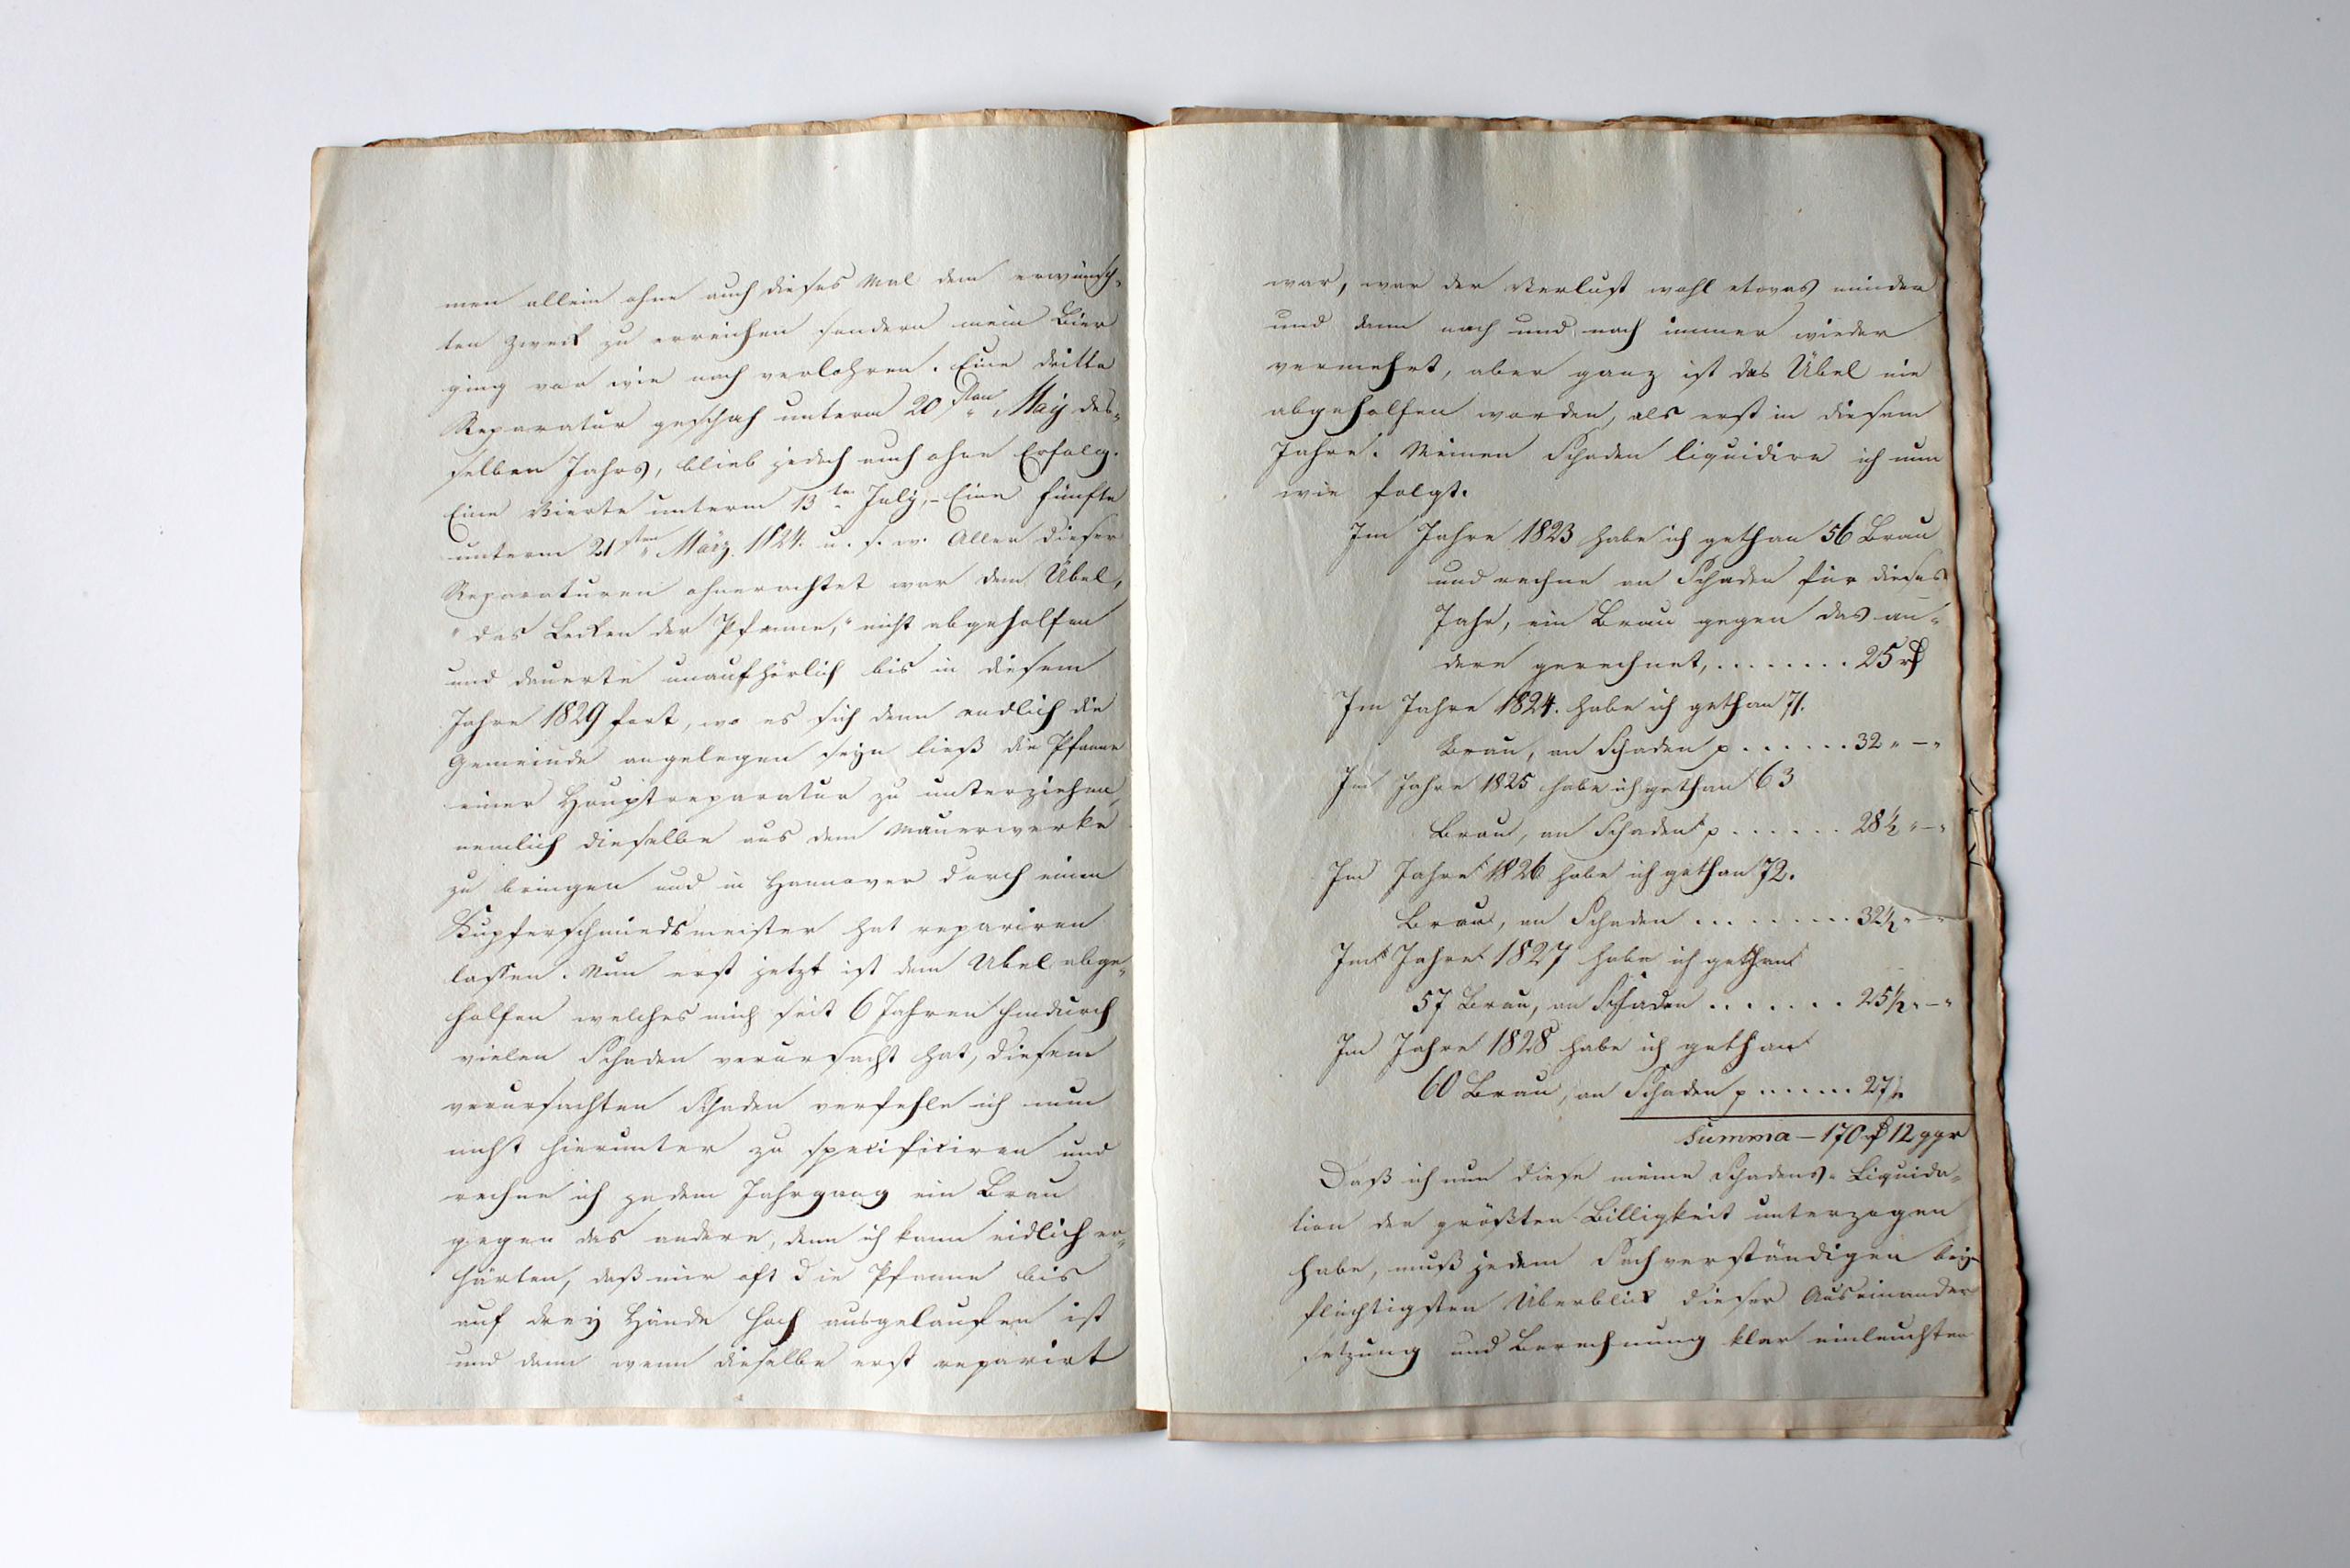 men allein ohne auch dieses Mal dem erwünsch-
ten Zweck zu erreichen sondern mein Bier
ging vor wie nach verlohren. Eine dritte
Reparatur geschah unterm 20sten May des-
selben Jahrs, blieb jedoch auch ohne Erfolg.
Eine Vierte unterm 13ten July, – Eine fünfte
unterm 21sten März 1824. u. s. w. Aller dieser
Reparaturen ohnerachtet war dem Übel,
"das Lecken der Pfanne," nicht abgeholfen
und dauerte unaufhörlich bis in diesem
Jahre 1829 fort, wo es sich denn endlich die
Gemeinde angelegen seyn ließ die Pfanne
einer Hauptreparatur zu unterziehen,
nemlich dieselbe aus dem Mauerwerke
zu bringen und in Hannover durch einen
Kupferschmiedsmeister hat repariren
lassen. Nun erst jetzt ist dem Übel abge-
holfen welches mich seit 6 Jahren hindurch
vielen Schaden verursacht hat, diesem
verursachten Schaden verfehle ich nun
nicht hierunter zu specificiren und
rechne ich jedem Jahrgang ein Brau
gegen das andere, denn ich kann eidlich er-
härten, daß mir oft die Pfanne bis
auf drey Hände hoch ausgelaufen ist
und dann wenn dieselbe erst reparirt
war, war der Verlust wohl etwas minder
und dann nach und nach immer wieder
vermehrt, aber ganz ist das Übel nie
abgeholfen worden, als erst in diesem
Jahre. Meinen Schaden liquidire ich nun
wie folgt.
Im Jahre 1823 habe ich gethan 56 Brau
und rechne an Schaden für dieses
Jahr, ein Brau gegen das an-
dere gerechnet, ........ 25 rf
Im Jahre 1824. habe ich gethan 71.
Brau, an Schaden p ...... 32 „ – „
Im Jahre 1825 habe ich gethan 63
Brau, an Schaden p ...... 28½ „ – „
Im Jahre 1826 habe ich gethan 72.
Brau, an Schaden ......... 32½ „ – „
Im Jahre 1827 habe ich gethan
57 Brau, an Schaden ....... 25½ „ – „
Im Jahre 1828 habe ich gethan
60 Brau, an Schaden p ...... 27
Summa – 170 rf 12 ggr
Daß ich nun diese meine Schadens-Liquida-
tion der größten Billigkeit unterzogen
habe, muß jedem Sachverständigen bey
flüchtigsten Überblick dieser Auseinander
setzung und Berechnung klar einleuchten